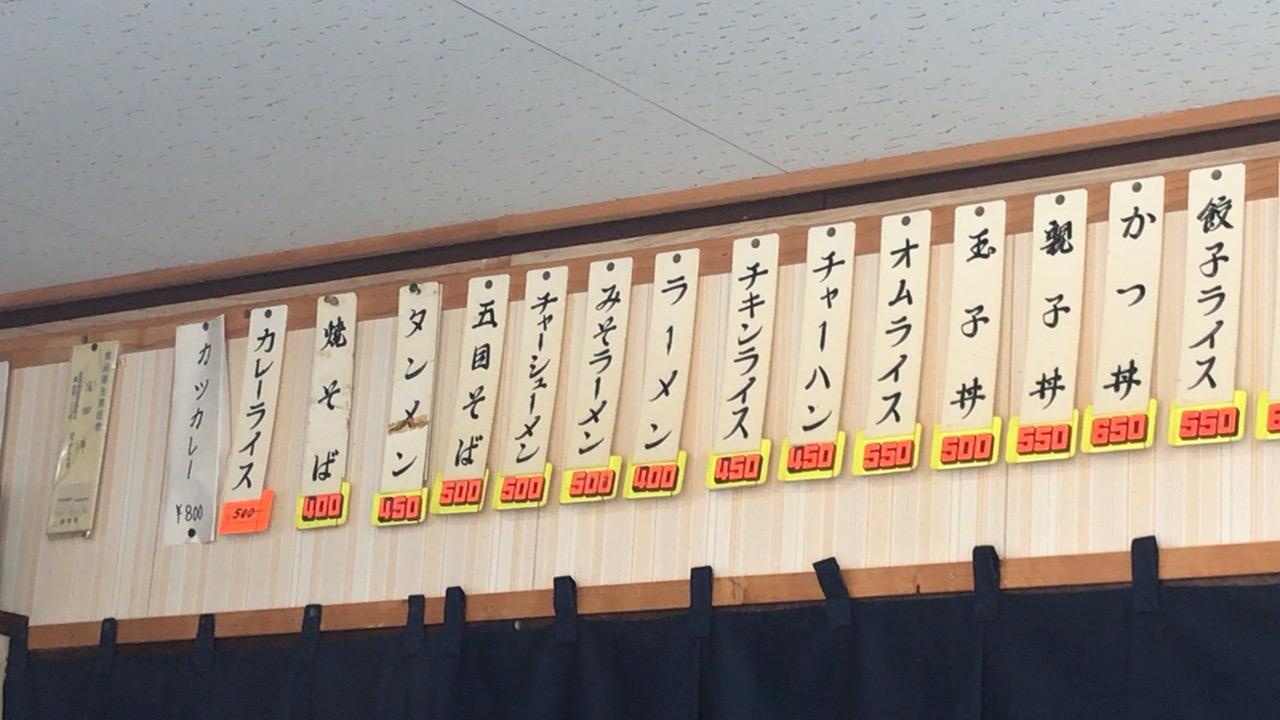 餃子ライス
550
かつ丼
650
親子丼
550
玉子丼
500
オムライス
550
チャーハン
450
チキンライス
450
ラーメン
400
みそラーメン
500
チャーシューメン
500
五目そば
500
タンメン
450
焼そば
400
カレーライス
500
カツカレー
¥800